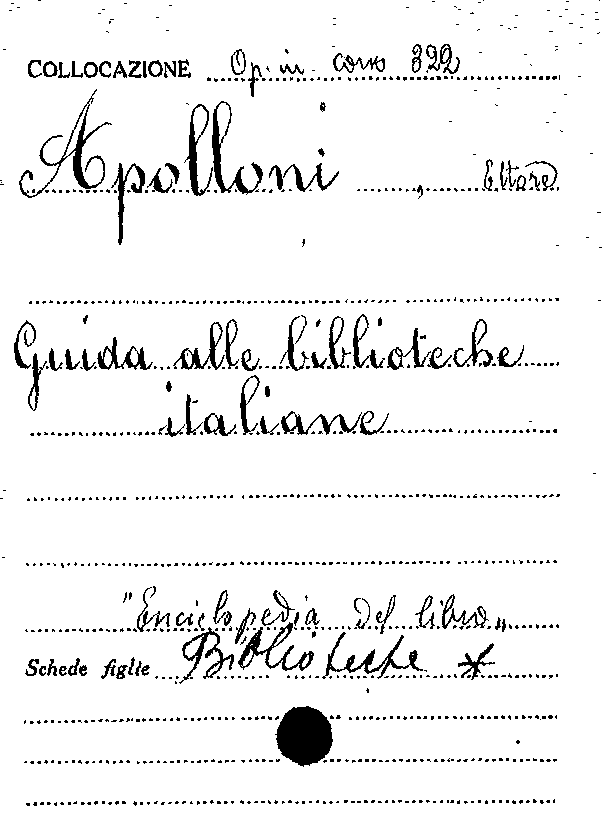 COLLOCAZIONE Op. in corso 322
Apolloni, Ettore
Guida alle biblioteche
italiane
"Enciclopedia del libro„
Schede figlie Biblioteche *